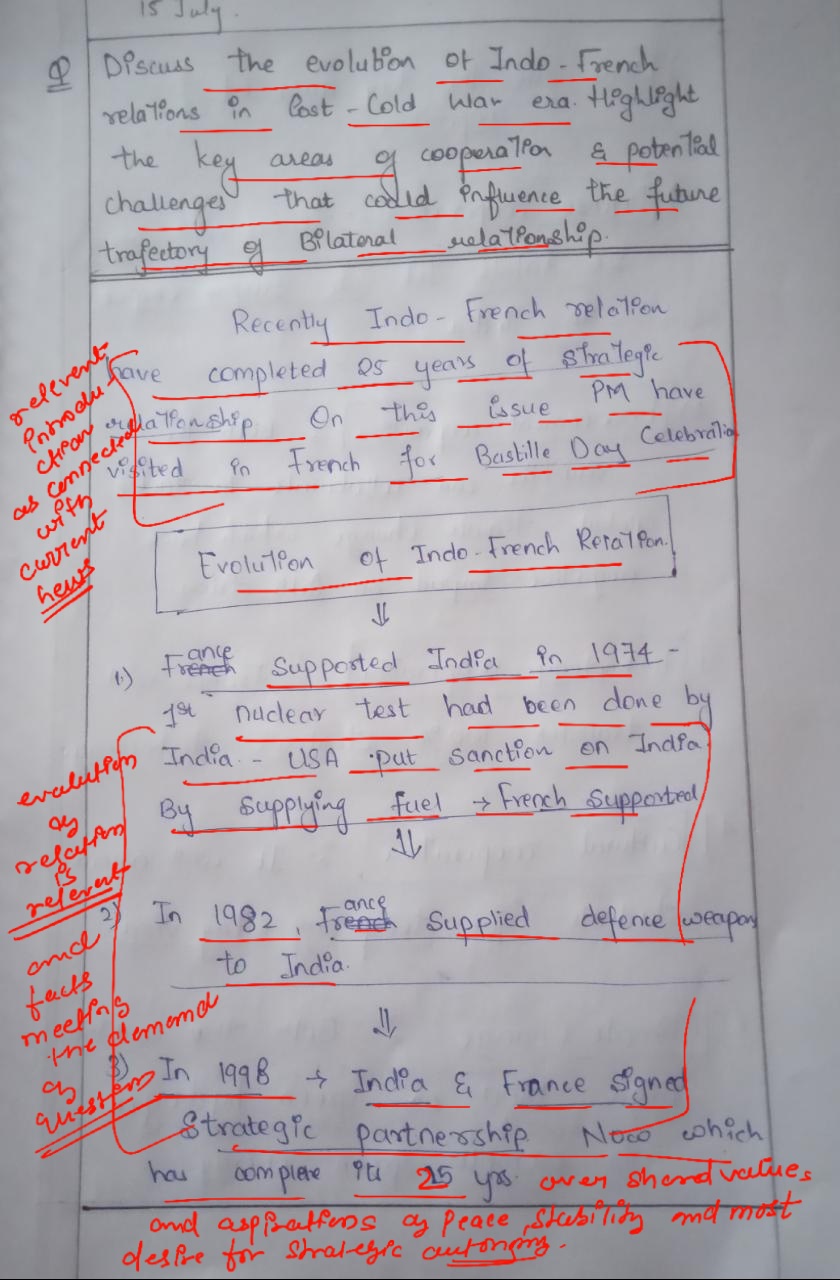 15 July.
Q Discuss the evolution of Indo-French
relations in Post-Cold War era. Highlight
the key areas of cooperation & potential
challenges that could influence the future
trajectory of Bilateral relationship.
Recently Indo-French relation
have completed 25 years of strategic
relationship On this issue PM have
visited in French for Bastille Day Celebration
relevent
introdu-
ction
as connected
with
current
news
Evolution of Indo-French Relation.
⇓
1.) France supported India in 1974 -
1st nuclear test had been done by
India - USA put sanction on India
By supplying fuel → French supported
⇓
evalution
of
relation
is
relevent
2) In 1982, France Supplied defence weapon
to India.
⇓
and
facts
meeting
the demand
of
question
3) In 1998 → India & France signed
Strategic partnership Now which
has complete its 25 yrs. over shared values
and aspirations of peace, stability and most
desire for strategic autonomy.